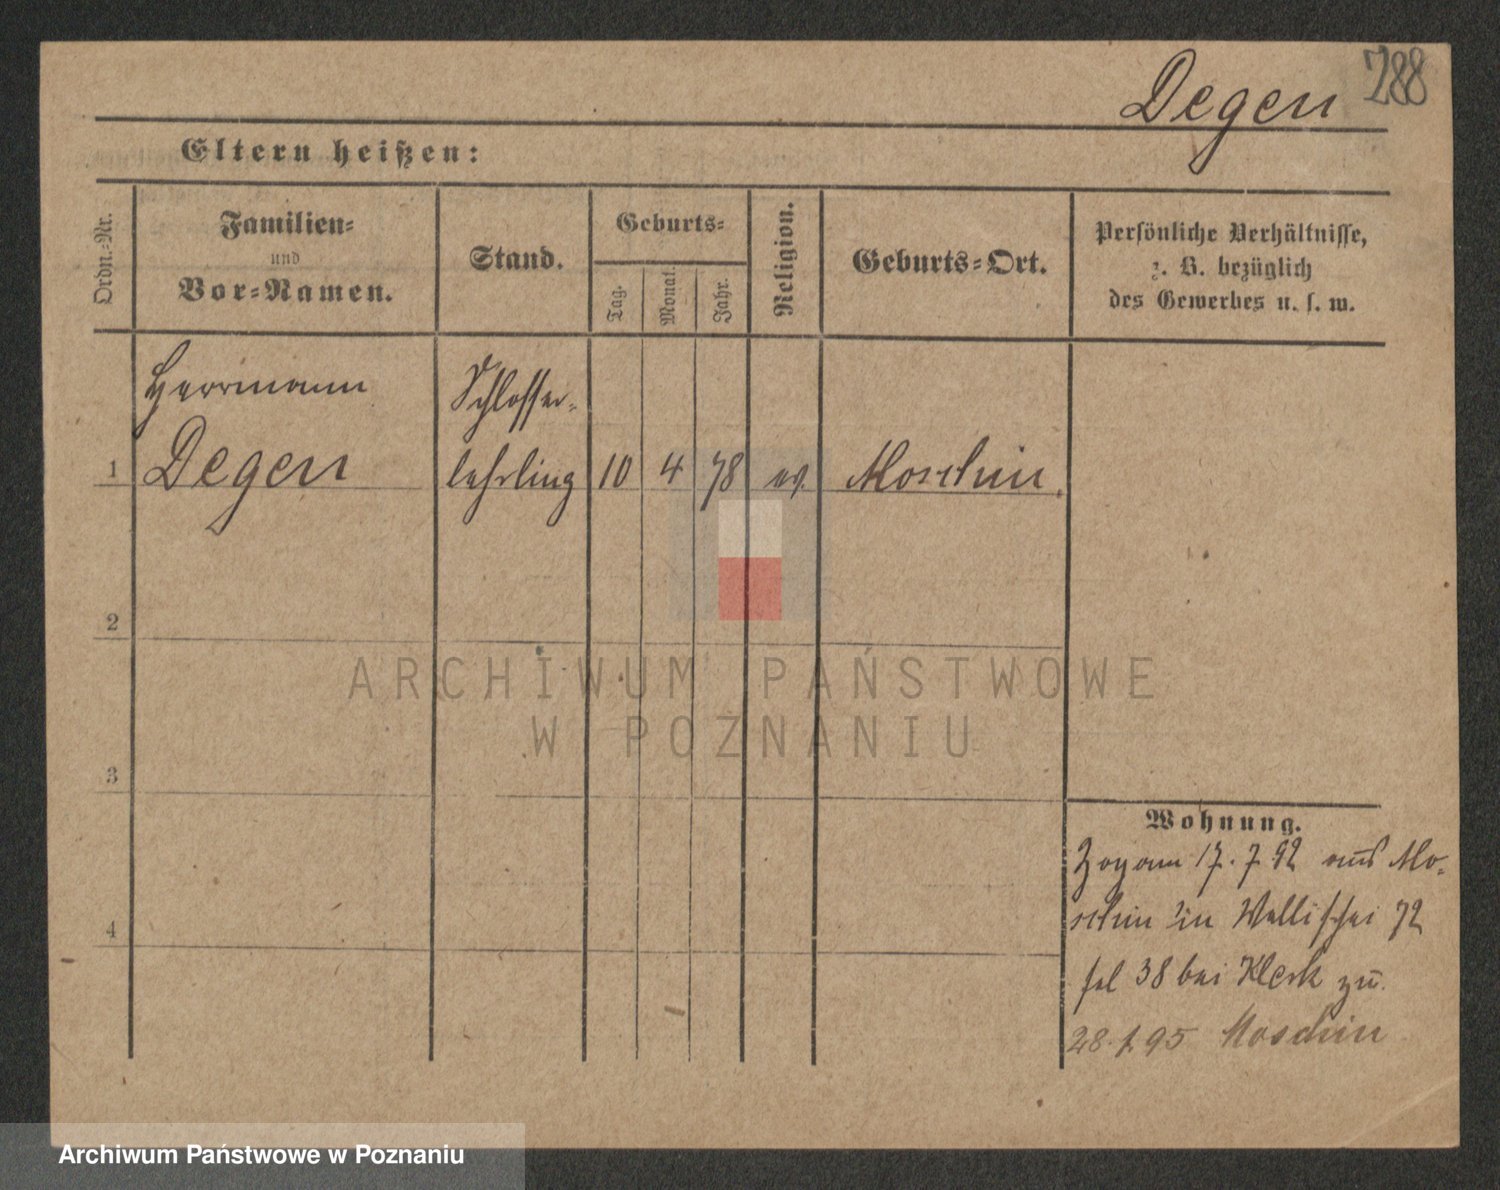 Degen 288
Eltern heißen:
Ordn.-Nr.
Familien-
und
Vor-Namen.
Stand.
Geburts-
Tag.
Monat.
Jahr.
Religion.
Geburts-Ort.
Persönliche Verhältnisse,
z. B. bezüglich
des Gewerbes u. s. w.
Herrmann Schlosser-
1 Degen lehrling 10 4 78 ev. Moschin
2
3
4
Wohnung.
Zog am 17. 7 92 aus Mo-
schin in Wallischei 72
bei Klesk zu.
28. 95 Moschin
ARCHIWUM PAŃSTWOWE
W POZNANIU
Archiwum Państwowe w Poznaniu